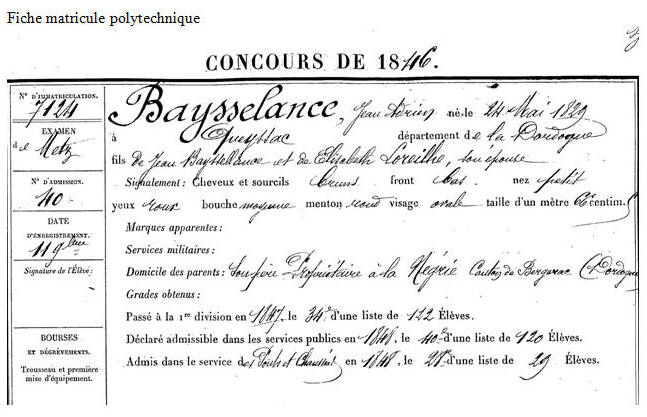 Fiche matricule polytechnique
CONCOURS DE 1846.
N° D'IMMATRICULATION.
7124
EXAMEN
de Metz
N° D'ADMISSION.
40
DATE
D'ENREGISTREMENT.
11 9bre
Signature de l'Élève:
BOURSES
ET DÉGRÈVEMENTS.
Trousseau et première
mise d'équipement.
Baysselance, Jean Adrien né le 24 Mai 1829
à Queyssac département de la Dordogne
fils de Jean Baysselance et de Elisabeth Loreilhe, son épouse
Signalement: Cheveux et sourcils bruns front bas nez petit
yeux roux bouche moyenne menton rond visage ovale taille d'un mètre 66 centim.
Marques apparentes:
Services militaires:
Domicile des parents: Son père Propriétaire à la Négrie Canton de Bergerac (Dordogne
Grades obtenus:
Passé à la 1re division en 1847, le 34e d'une liste de 122 Élèves.
Déclaré admissible dans les services publics en 1848, le 40e d'une liste de 120 Élèves.
Admis dans le service des Ponts et Chaussées en 1848, le d'une liste de 29 Élèves.